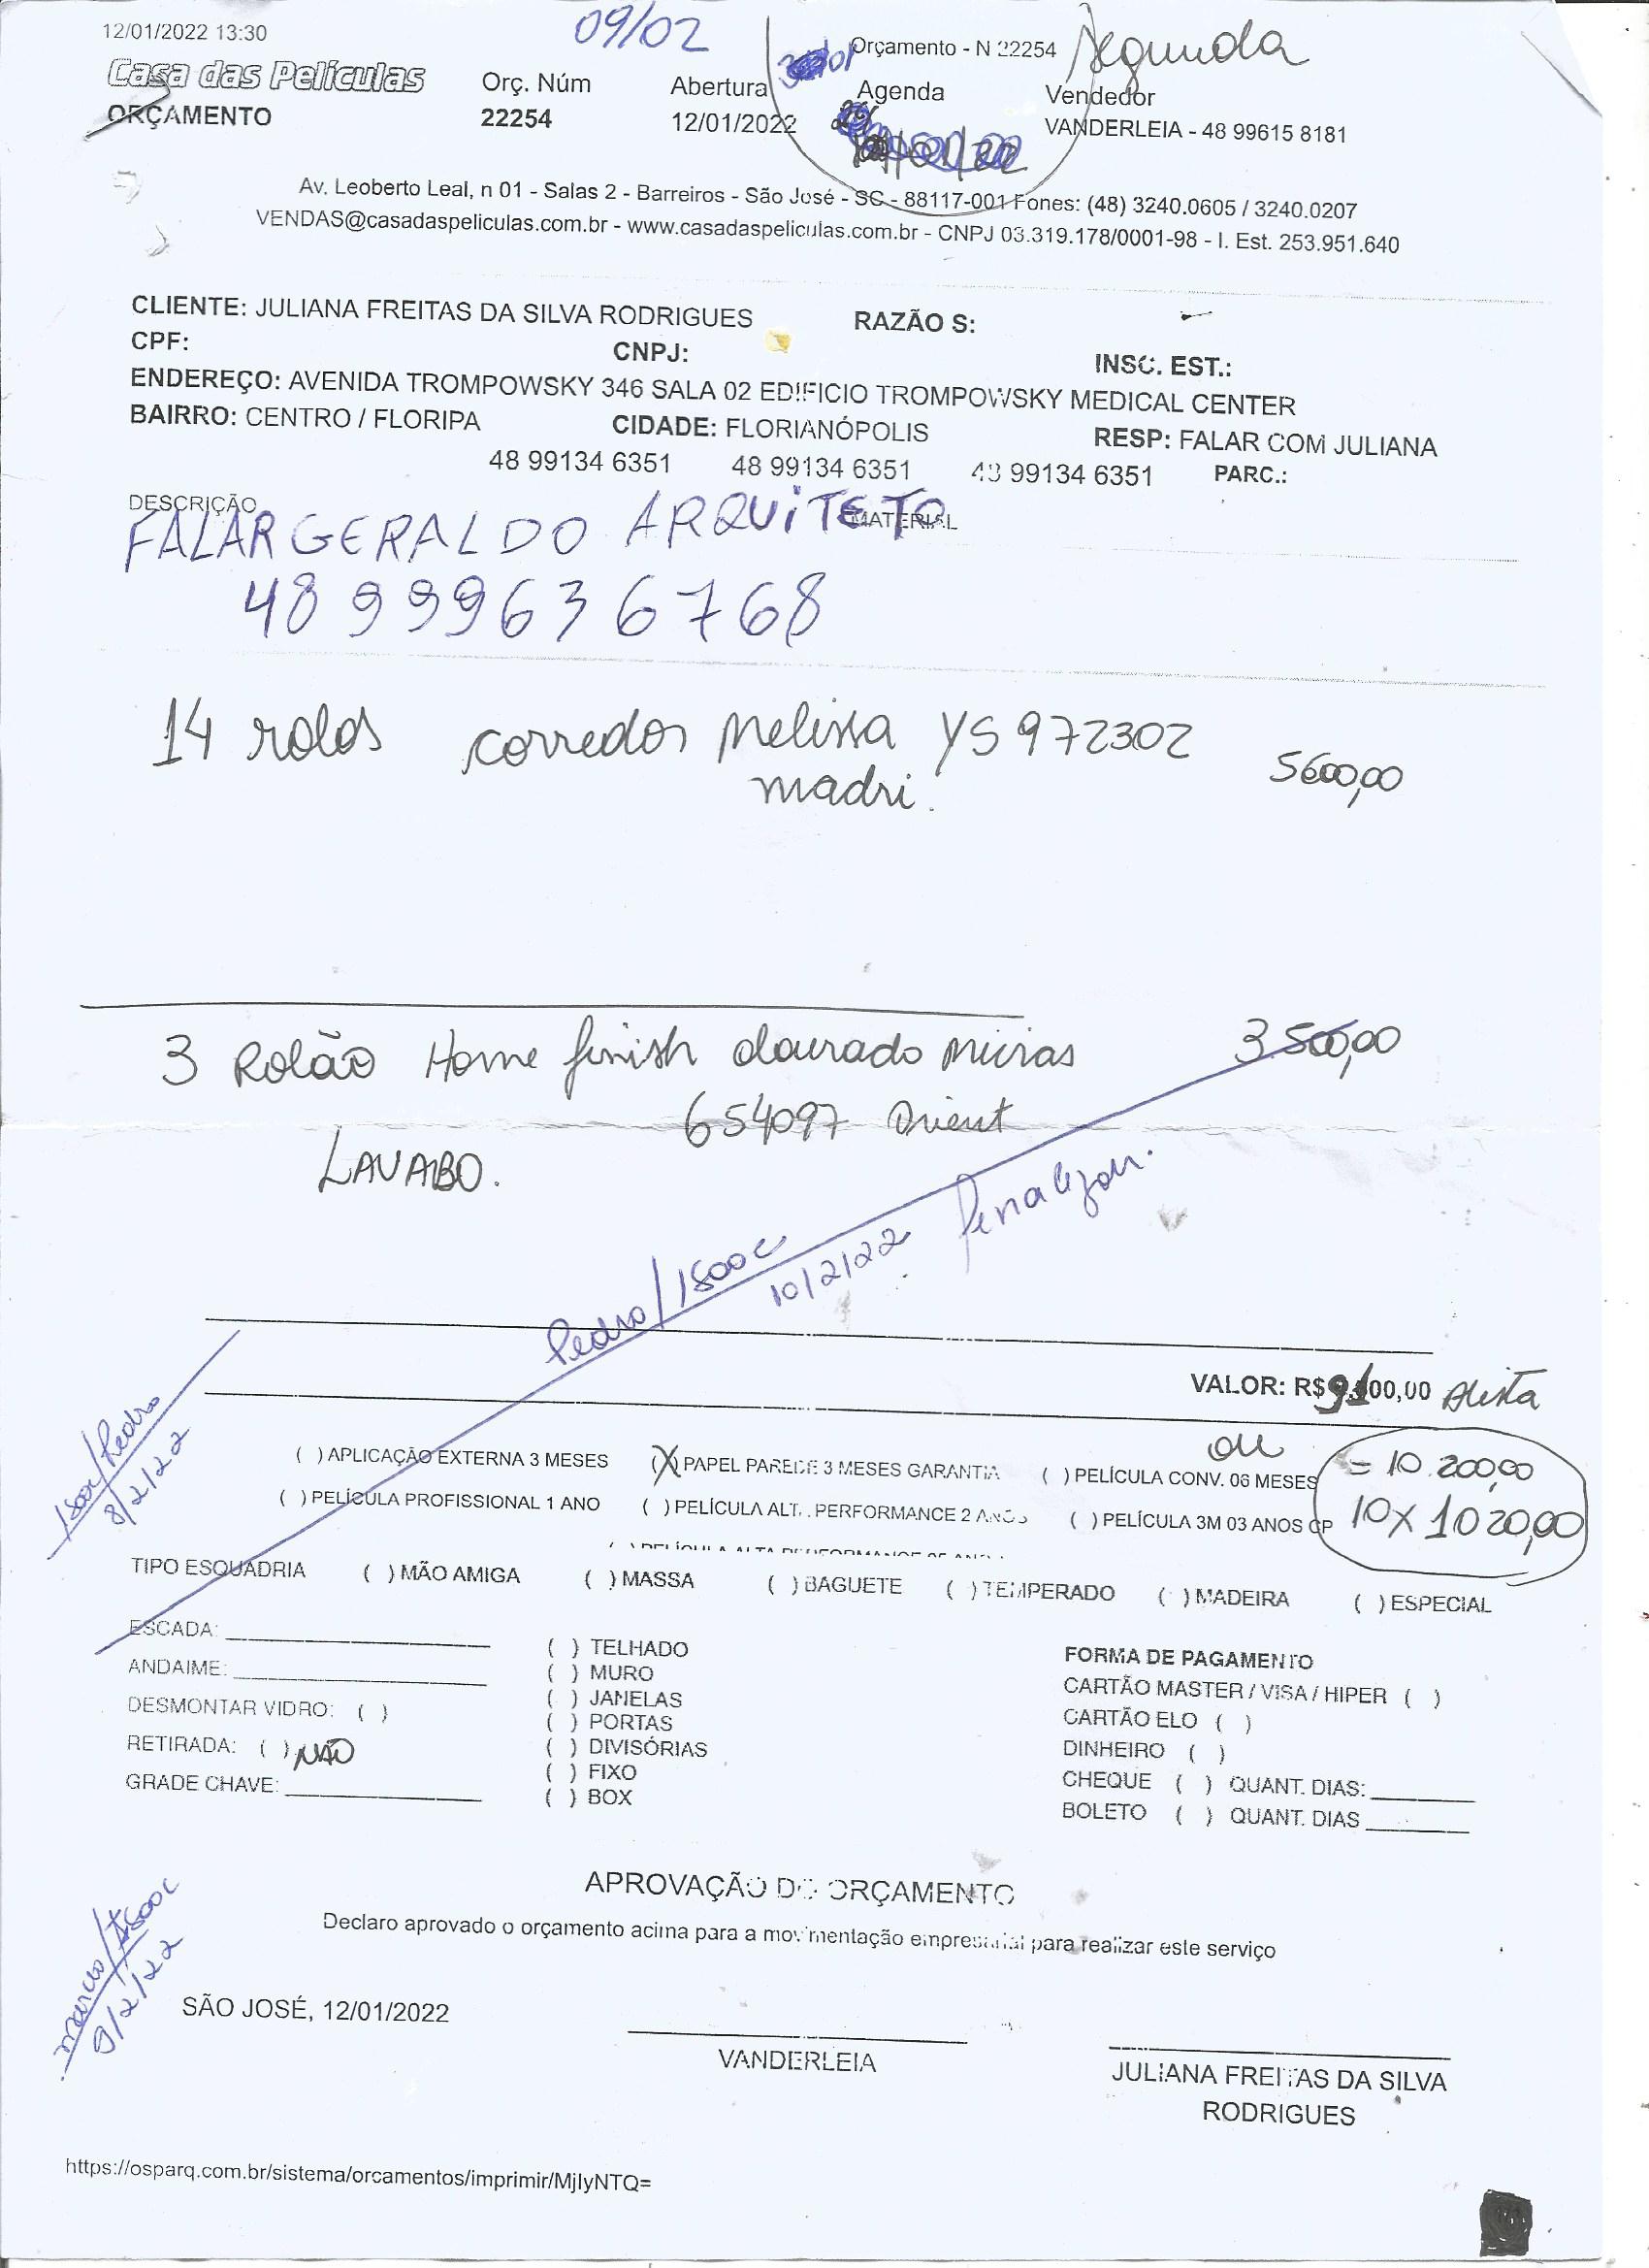 12/01/2022 13:30
09/02
Orçamento - N 22254
Segunda
Casa das Películas
ORÇAMENTO
Orç. Núm
22254
Abertura
12/01/2022
Agenda
Vendedor
VANDERLEIA - 48 99615 8181
Av. Leoberto Leal, n 01 - Salas 2 - Barreiros - São José - SC - 88117-001 Fones: (48) 3240.0605 / 3240.0207
VENDAS@casadaspeliculas.com.br - www.casadaspeliculas.com.br - CNPJ 03.319.178/0001-98 - I. Est. 253.951.640
CLIENTE: JULIANA FREITAS DA SILVA RODRIGUES RAZÃO S:
CPF: CNPJ: INSC. EST.:
ENDEREÇO: AVENIDA TROMPOWSKY 346 SALA 02 EDIFICIO TROMPOWSKY MEDICAL CENTER
BAIRRO: CENTRO / FLORIPA CIDADE: FLORIANÓPOLIS RESP: FALAR COM JULIANA
48 99134 6351 48 99134 6351 48 99134 6351 PARC.:
DESCRIÇÃO MATERIAL
FALAR GERALDO ARQUITETO
48 999636768
14 rolos corredor Melissa YS 972302 5600,00
madri.
3 Rolão Home finish dourado Micras 3500,00
654097 Orient
LAVABO.
Pedro/Isaac
10/2/22 Finalizou.
VALOR: R$ 9100,00 Avista
Isaac/Pedro
8/2/22
ou = 10.200,00
10x 1020,00
( ) APLICAÇÃO EXTERNA 3 MESES (X) PAPEL PAREDE 3 MESES GARANTIA ( ) PELÍCULA CONV. 06 MESES
( ) PELÍCULA PROFISSIONAL 1 ANO ( ) PELÍCULA ALT. PERFORMANCE 2 ANOS ( ) PELÍCULA 3M 03 ANOS CP
TIPO ESQUADRIA ( ) MÃO AMIGA ( ) MASSA ( ) BAGUETE ( ) TEMPERADO ( ) MADEIRA ( ) ESPECIAL
ESCADA:
ANDAIME:
DESMONTAR VIDRO: ( )
RETIRADA: ( ) NÃO
GRADE CHAVE:
( ) TELHADO
( ) MURO
( ) JANELAS
( ) PORTAS
( ) DIVISÓRIAS
( ) FIXO
( ) BOX
FORMA DE PAGAMENTO
CARTÃO MASTER / VISA / HIPER ( )
CARTÃO ELO ( )
DINHEIRO ( )
CHEQUE ( ) QUANT. DIAS:
BOLETO ( ) QUANT. DIAS
APROVAÇÃO DO ORÇAMENTO
Declaro aprovado o orçamento acima para a movimentação empresarial para realizar este serviço
Marcio/Isaac
9/2/22
SÃO JOSÉ, 12/01/2022
VANDERLEIA
JULIANA FREITAS DA SILVA
RODRIGUES
https://osparq.com.br/sistema/orcamentos/imprimir/MjIyNTQ=